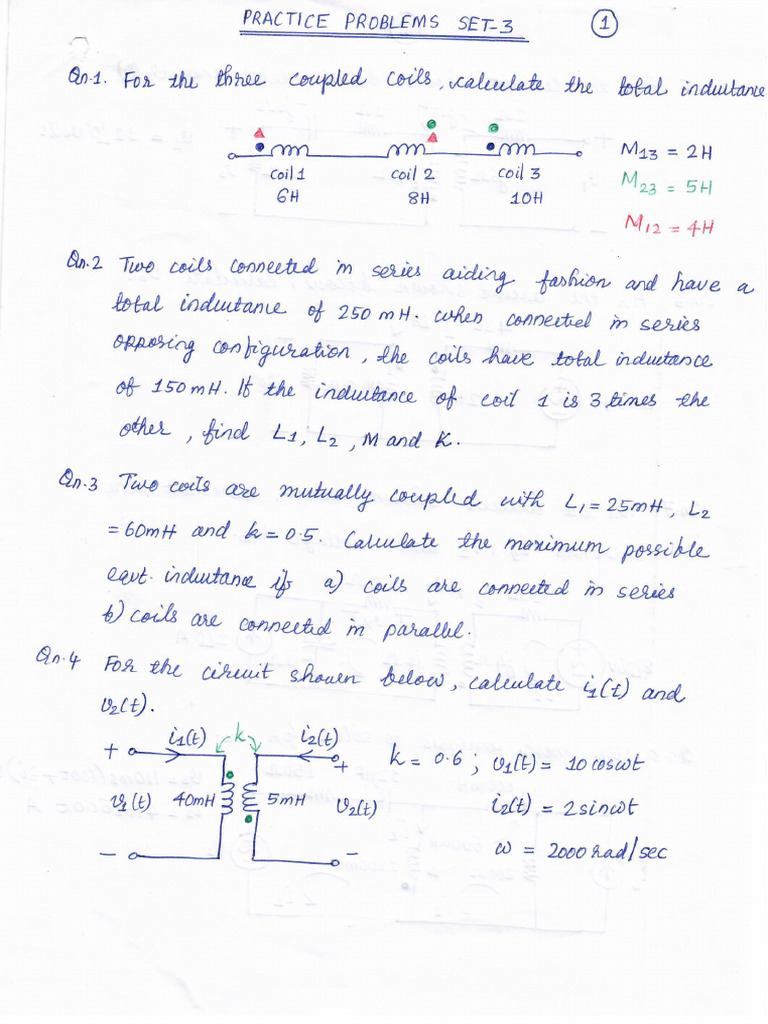 PRACTICE PROBLEMS SET-3 1
Qn.1. For the three coupled coils, calculate the total inductance
M13 = 2H
coil 1 coil 2 coil 3
M23 = 5H
6H 8H 10H
M12 = 4H
Qn.2 Two coils connected in series aiding fashion and have a
total inductance of 250 mH. when connected in series
opposing configuration, the coils have total inductance
of 150mH. If the inductance of coil 1 is 3 times the
other, find L1, L2, M and K.
Qn.3 Two coils are mutually coupled with L1 = 25mH, L2
= 60mH and k = 0.5. Calculate the maximum possible
eqvt. inductance if a) coils are connected in series
b) coils are connected in parallel.
Qn.4 For the circuit shown below, calculate i1(t) and
v2(t).
+ i1(t) k i2(t) +
k = 0.6 ; v1(t) = 10 cos ωt
v1(t) 40mH 5mH v2(t)
i2(t) = 2 sin ωt
- -
ω = 2000 rad/sec